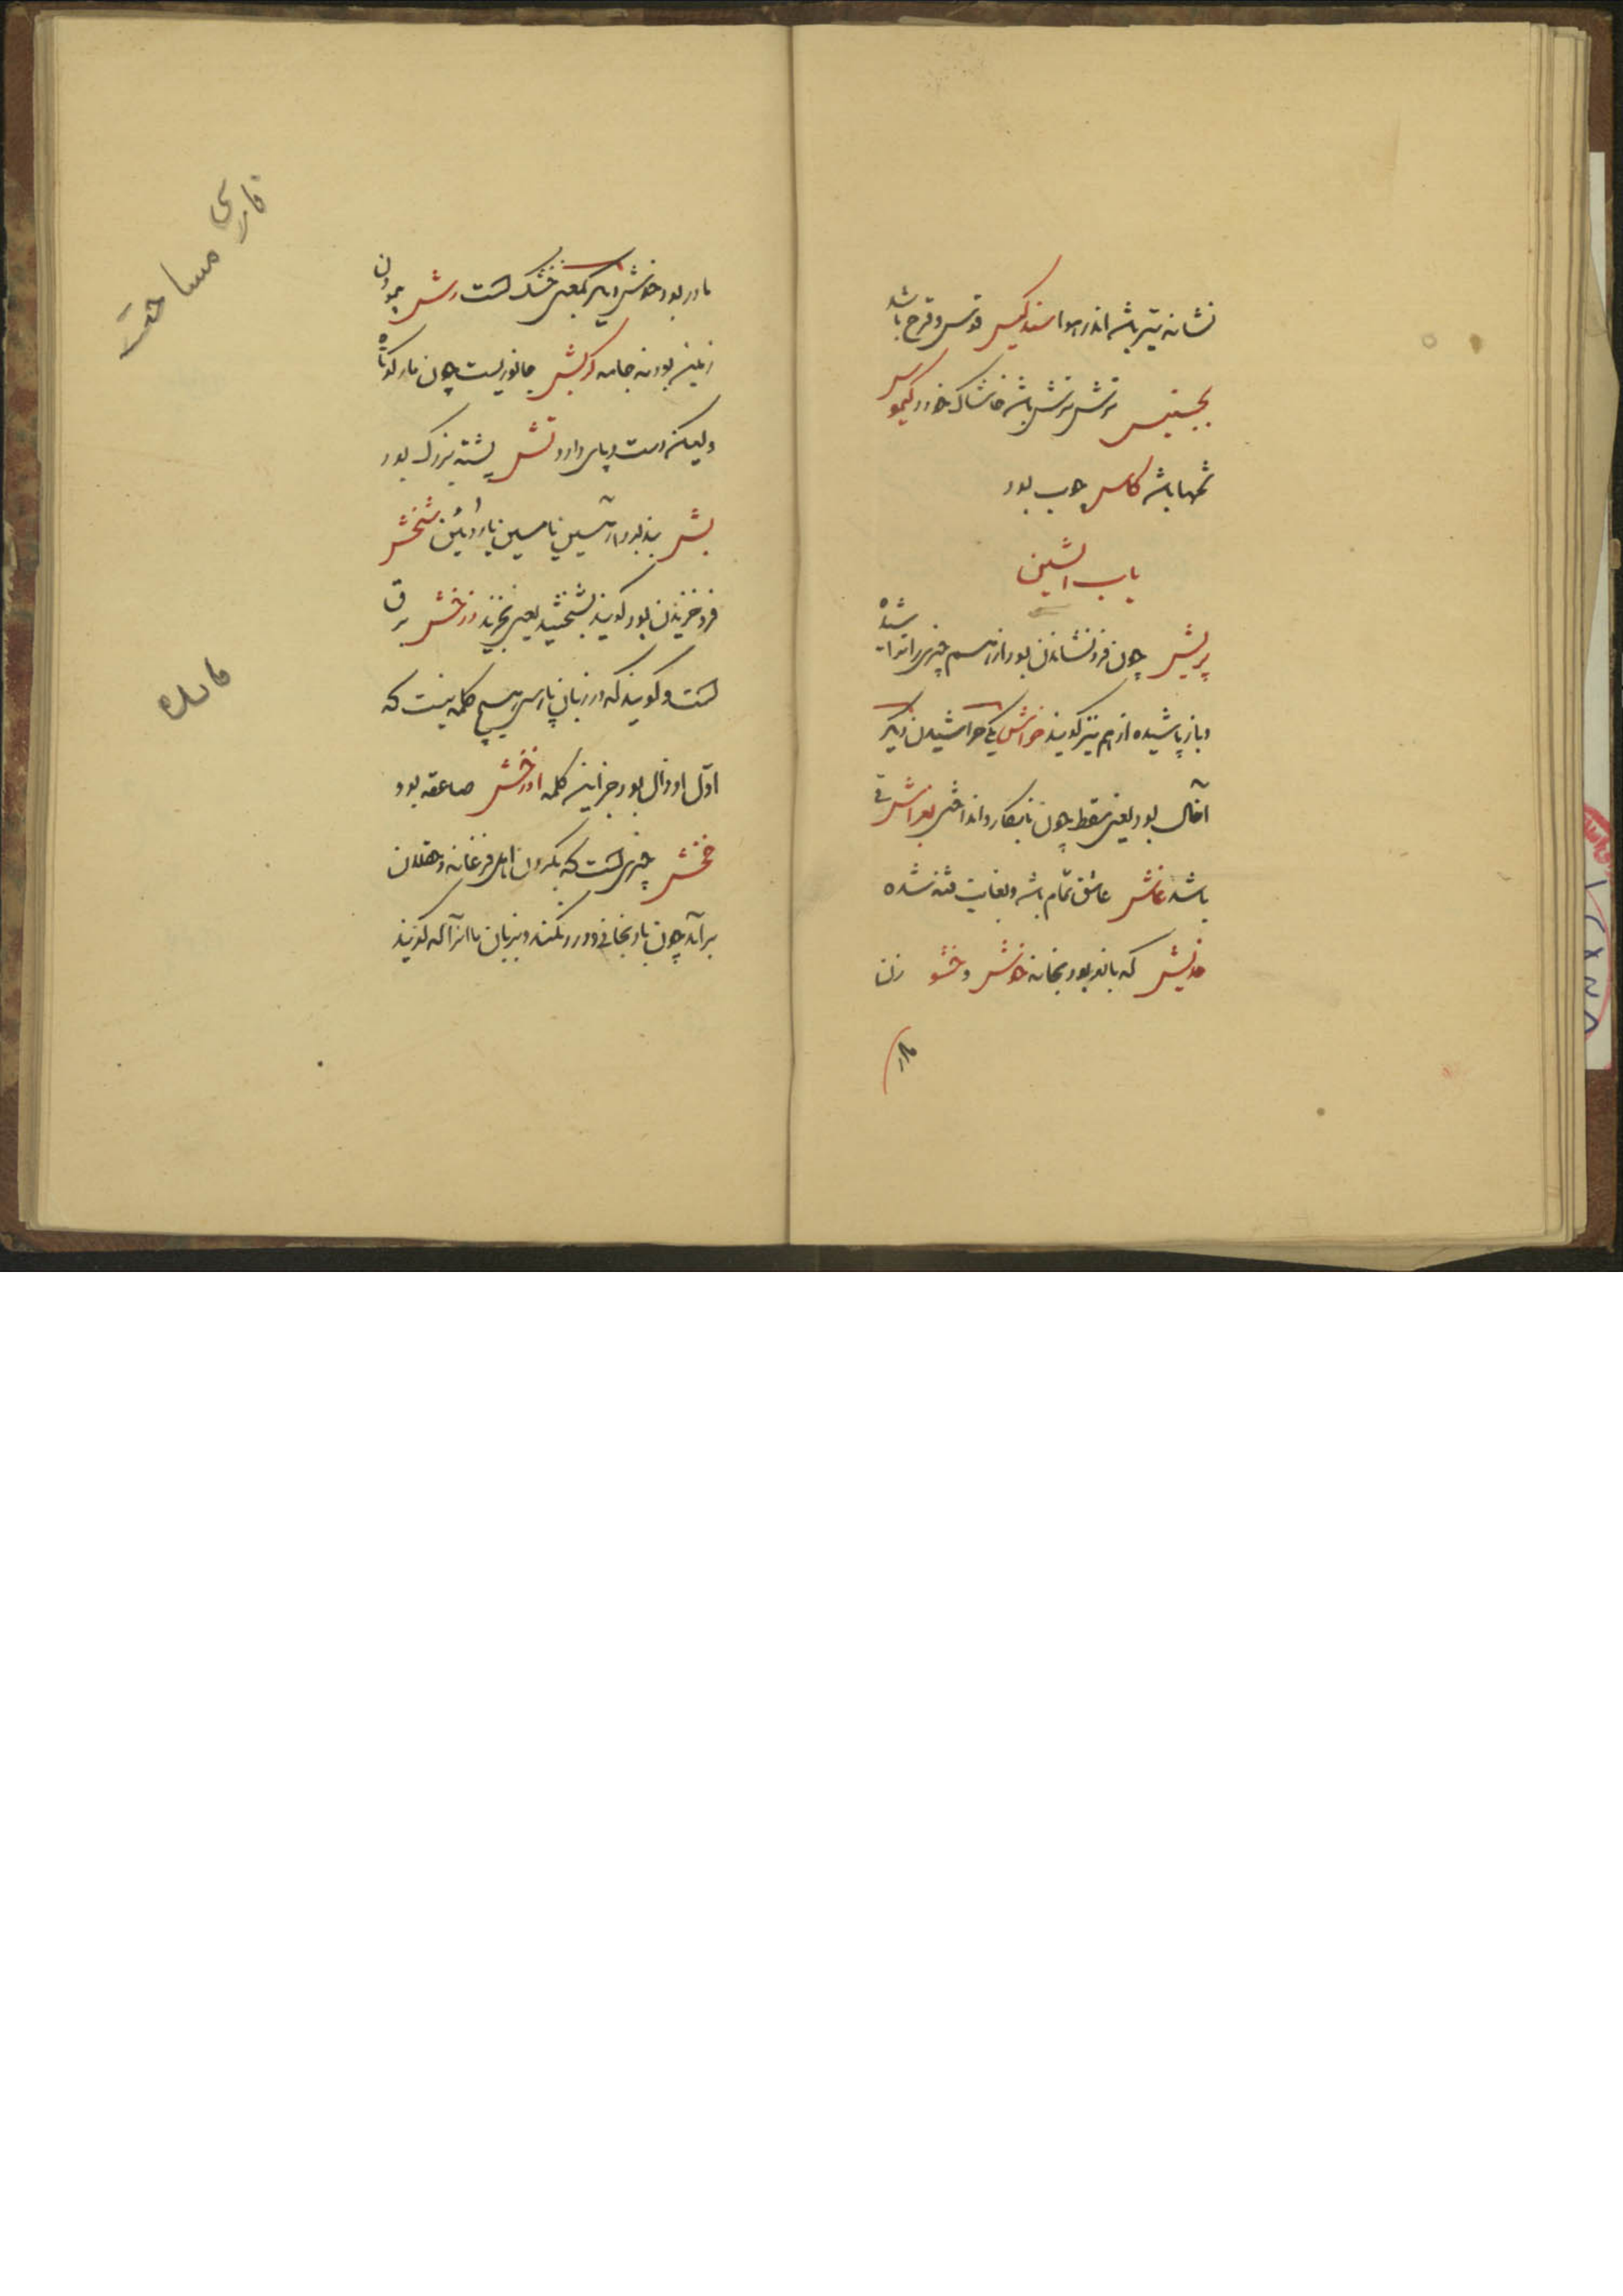 نشانه تیر باشد اندر هوا سندکیس قوس و قزح باشد
ترش ترش باشد خاشاک خورد کیموس
تنها باشد کاس چوب بود
باب الشین
پریش چون فرونشاندن بود از هم چیزی را
و باز پاشیده از هم نیز گویند خراش یکی خراشیدن دیگر
آخال بود یعنی سقط چون نابکار و انداختی
باشد غاش عاشق تمام باشد و بغایت فتنه شده
خدیش که بانو بود بخانه خوش و خشو زن
مادر بود خوش دیگر بمعنی خشک است رش پیمودن
زمین بود نه جامه کربش جانوریست چون مار کوتاه
ولیکن دست و پای دارد تش پشته بزرگ بود
بش بند بود آهنین یا مسین یا روئین شخش
فرو خزیدن بود گویند بشخشید یعنی بخزید درخش برق
است و گویند که در زبان پارسی هیچ کلمه نیست که
اول او ذال بود جز این کلمه آذرخش صاعقه بود
خخش چیزی است که بگردن اهل فرغانه و ختلان
برآید چون بادنجانی و درد نکند و بزبان ما آنرا گویند
فارسی مساحت
ماده